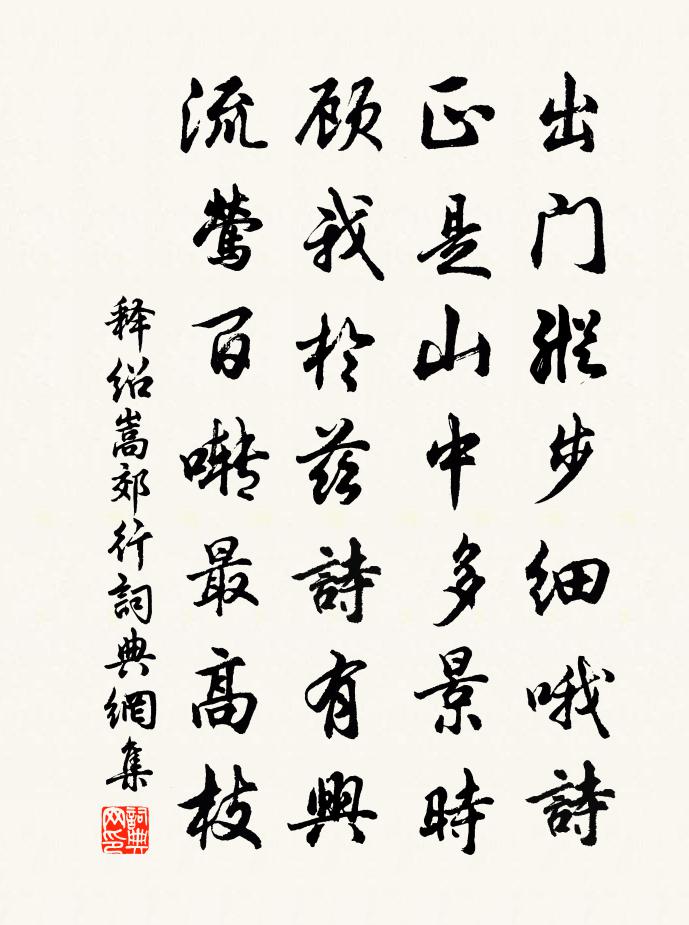 出门纵步细哦詩
正是山中多景時
顾我於兹詩有興
流莺百啭最高枝
释绍嵩郊行詞典網集
詞典网印